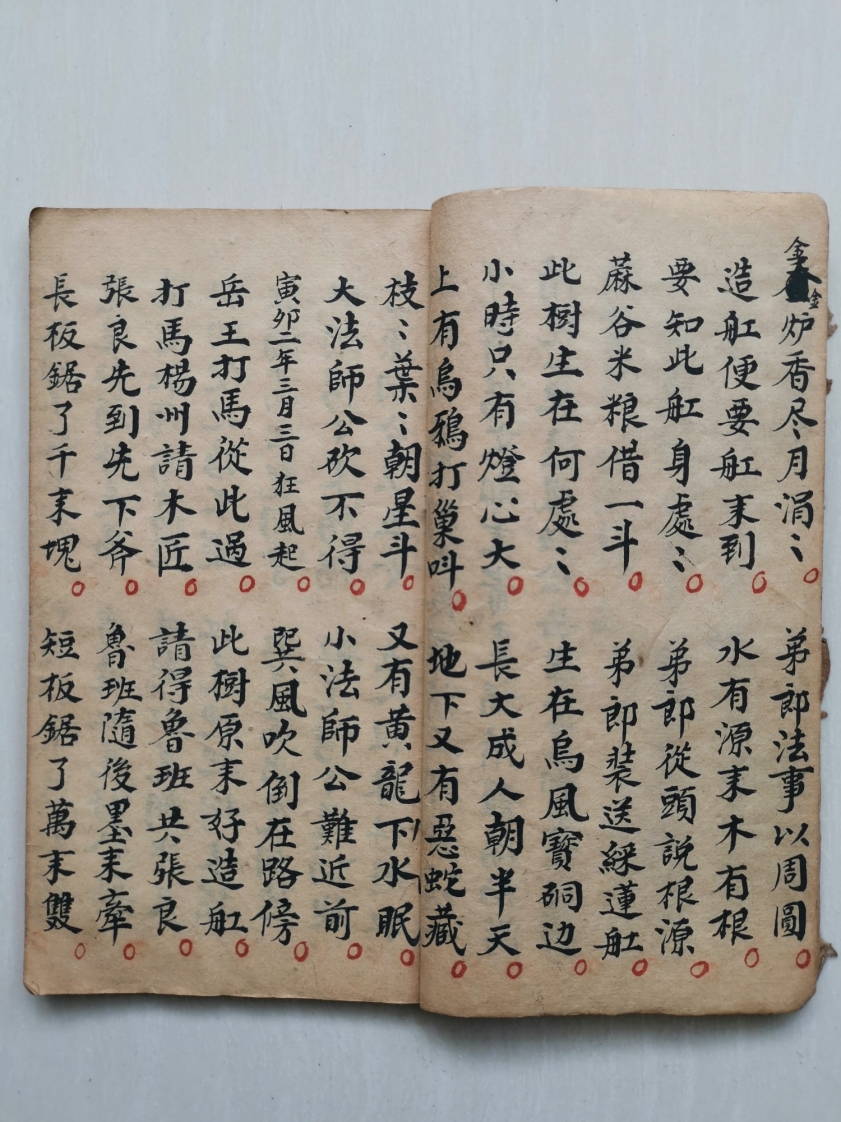 金炉香尽月涓〻 弟郎法事以周圓
造舡便要舡末到 水有源末木有根
要知此舡身處〻 弟郎從頭説根源
蔴谷米粮借一斗 弟郎装送綵蓮舡
此樹生在何處〻 生在烏風寶硐边
小時只有燈心大 長大成人朝半天
上有烏鴉打巢呌 地下又有惡蛇藏
枝〻葉〻朝星斗 又有黄龍下水眠
大法師公砍不得 小法師公難近前
寅夘二年三月三日狂風起 巽風吹倒在路傍
岳王打馬從此過 此樹原末好造舡
打馬楊州請木匠 請得魯班共張良
張良先到先下斧 魯班隨後墨末牽
長板鋸了千末塊 短板鋸了萬末雙